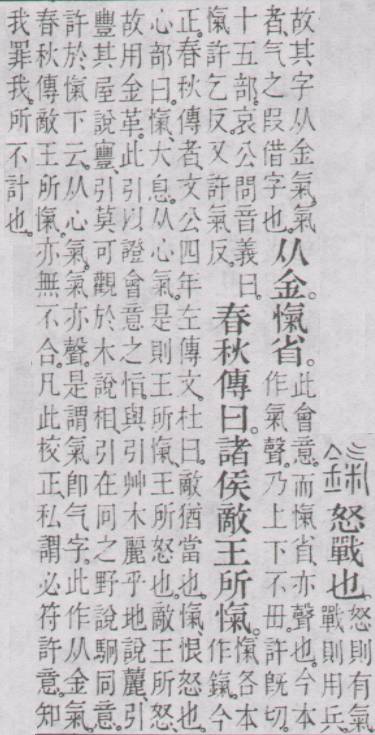 鎎怒戰也。怒則有氣。戰則用兵。
故其字从金氣。氣者、气之叚借字也。从金。愾省。此會意。而愾省亦聲也。今本作氣聲。乃上下不毌。許旣切。
十五部。哀公問音義曰。愾許乞反。又許氣反。春秋傳曰。諸侯敵王所愾。愾各本作鎎。今
正。春秋傳者、文公四年左傳文。杜曰。敵猶當也。愾、恨怒也。
心部曰。愾、大息。从心氣。是則王所愾、王所怒也。敵王所怒、
故用金革。此引以證會意之恉。與引艸木麗乎地說麗、引
豐其屋說寷、引莫可觀於木說相、引在冋之野說駉同意。
許於愾下云。从心氣。氣亦聲。是謂氣卽气字。此作从金氣。
春秋傳敵王所愾。亦無不合。凡此校正。私謂必符許意。知
我罪我。所不計也。